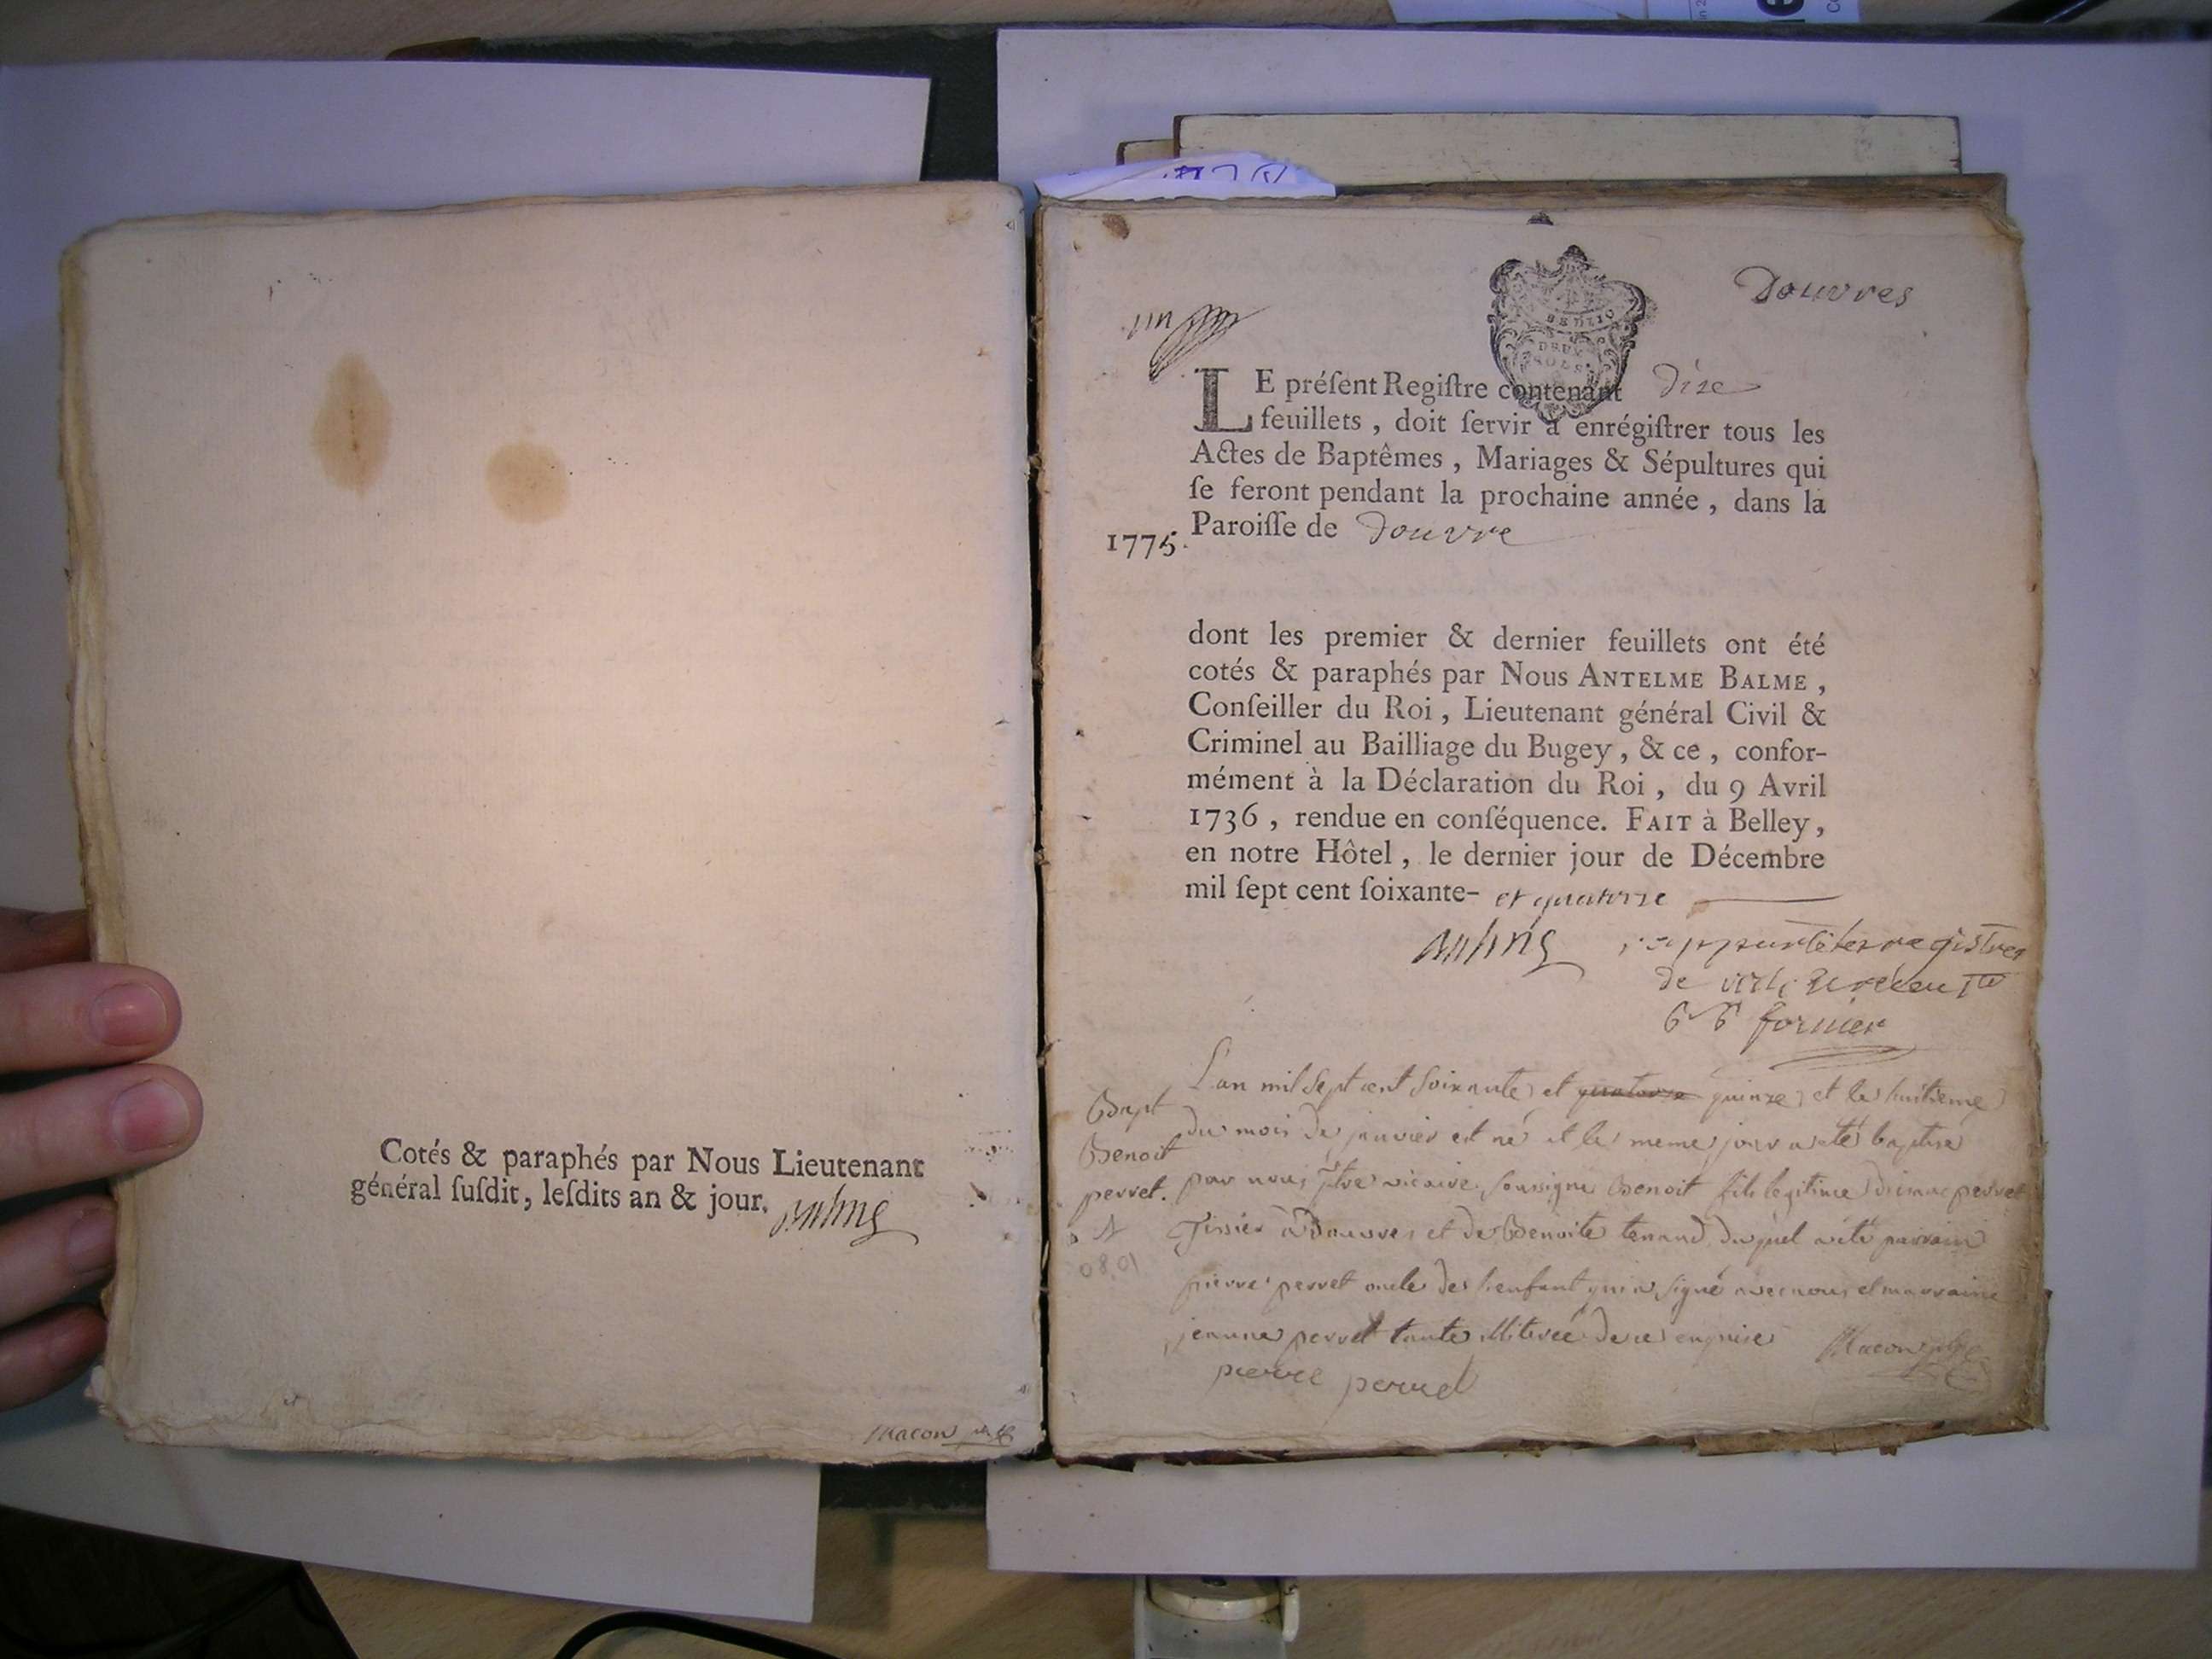 Cotés & paraphés par Nous Lieutenant
général ſuſdit, leſdits an & jour.
Macon
Douvres
DEUX
SOLS
LE préſent Regiſtre contenant dixe
feuillets, doit ſervir à enrégiſtrer tous les
Actes de Baptêmes, Mariages & Sépultures qui
ſe feront pendant la prochaine année, dans la
Paroiſſe de Douvre
1775.
dont les premier & dernier feuillets ont été
cotés & paraphés par Nous ANTELME BALME,
Conſeiller du Roi, Lieutenant général Civil &
Criminel au Bailliage du Bugey, & ce, confor-
mément à la Déclaration du Roi, du 9 Avril
1736, rendue en conſéquence. FAIT à Belley,
en notre Hôtel, le dernier jour de Décembre
mil ſept cent ſoixante- et quatorze
registres
de
fornier
Bapt
Benoit
perret.
08.01
L'an mil sept cent soixante et quatorze quinze et le huitieme
du mois de janvier est né et le meme jour a eté baptisé
par nous ptre vicaire soussigné Benoit fils legitime perret
Tissier à Douvres et de Benoite tenand duquel a eté parrain
pierre perret oncle de l'enfant qui a signé avec nous et marraine
jeanne perret tante illiterée de ce enquise Macon
pierre perret